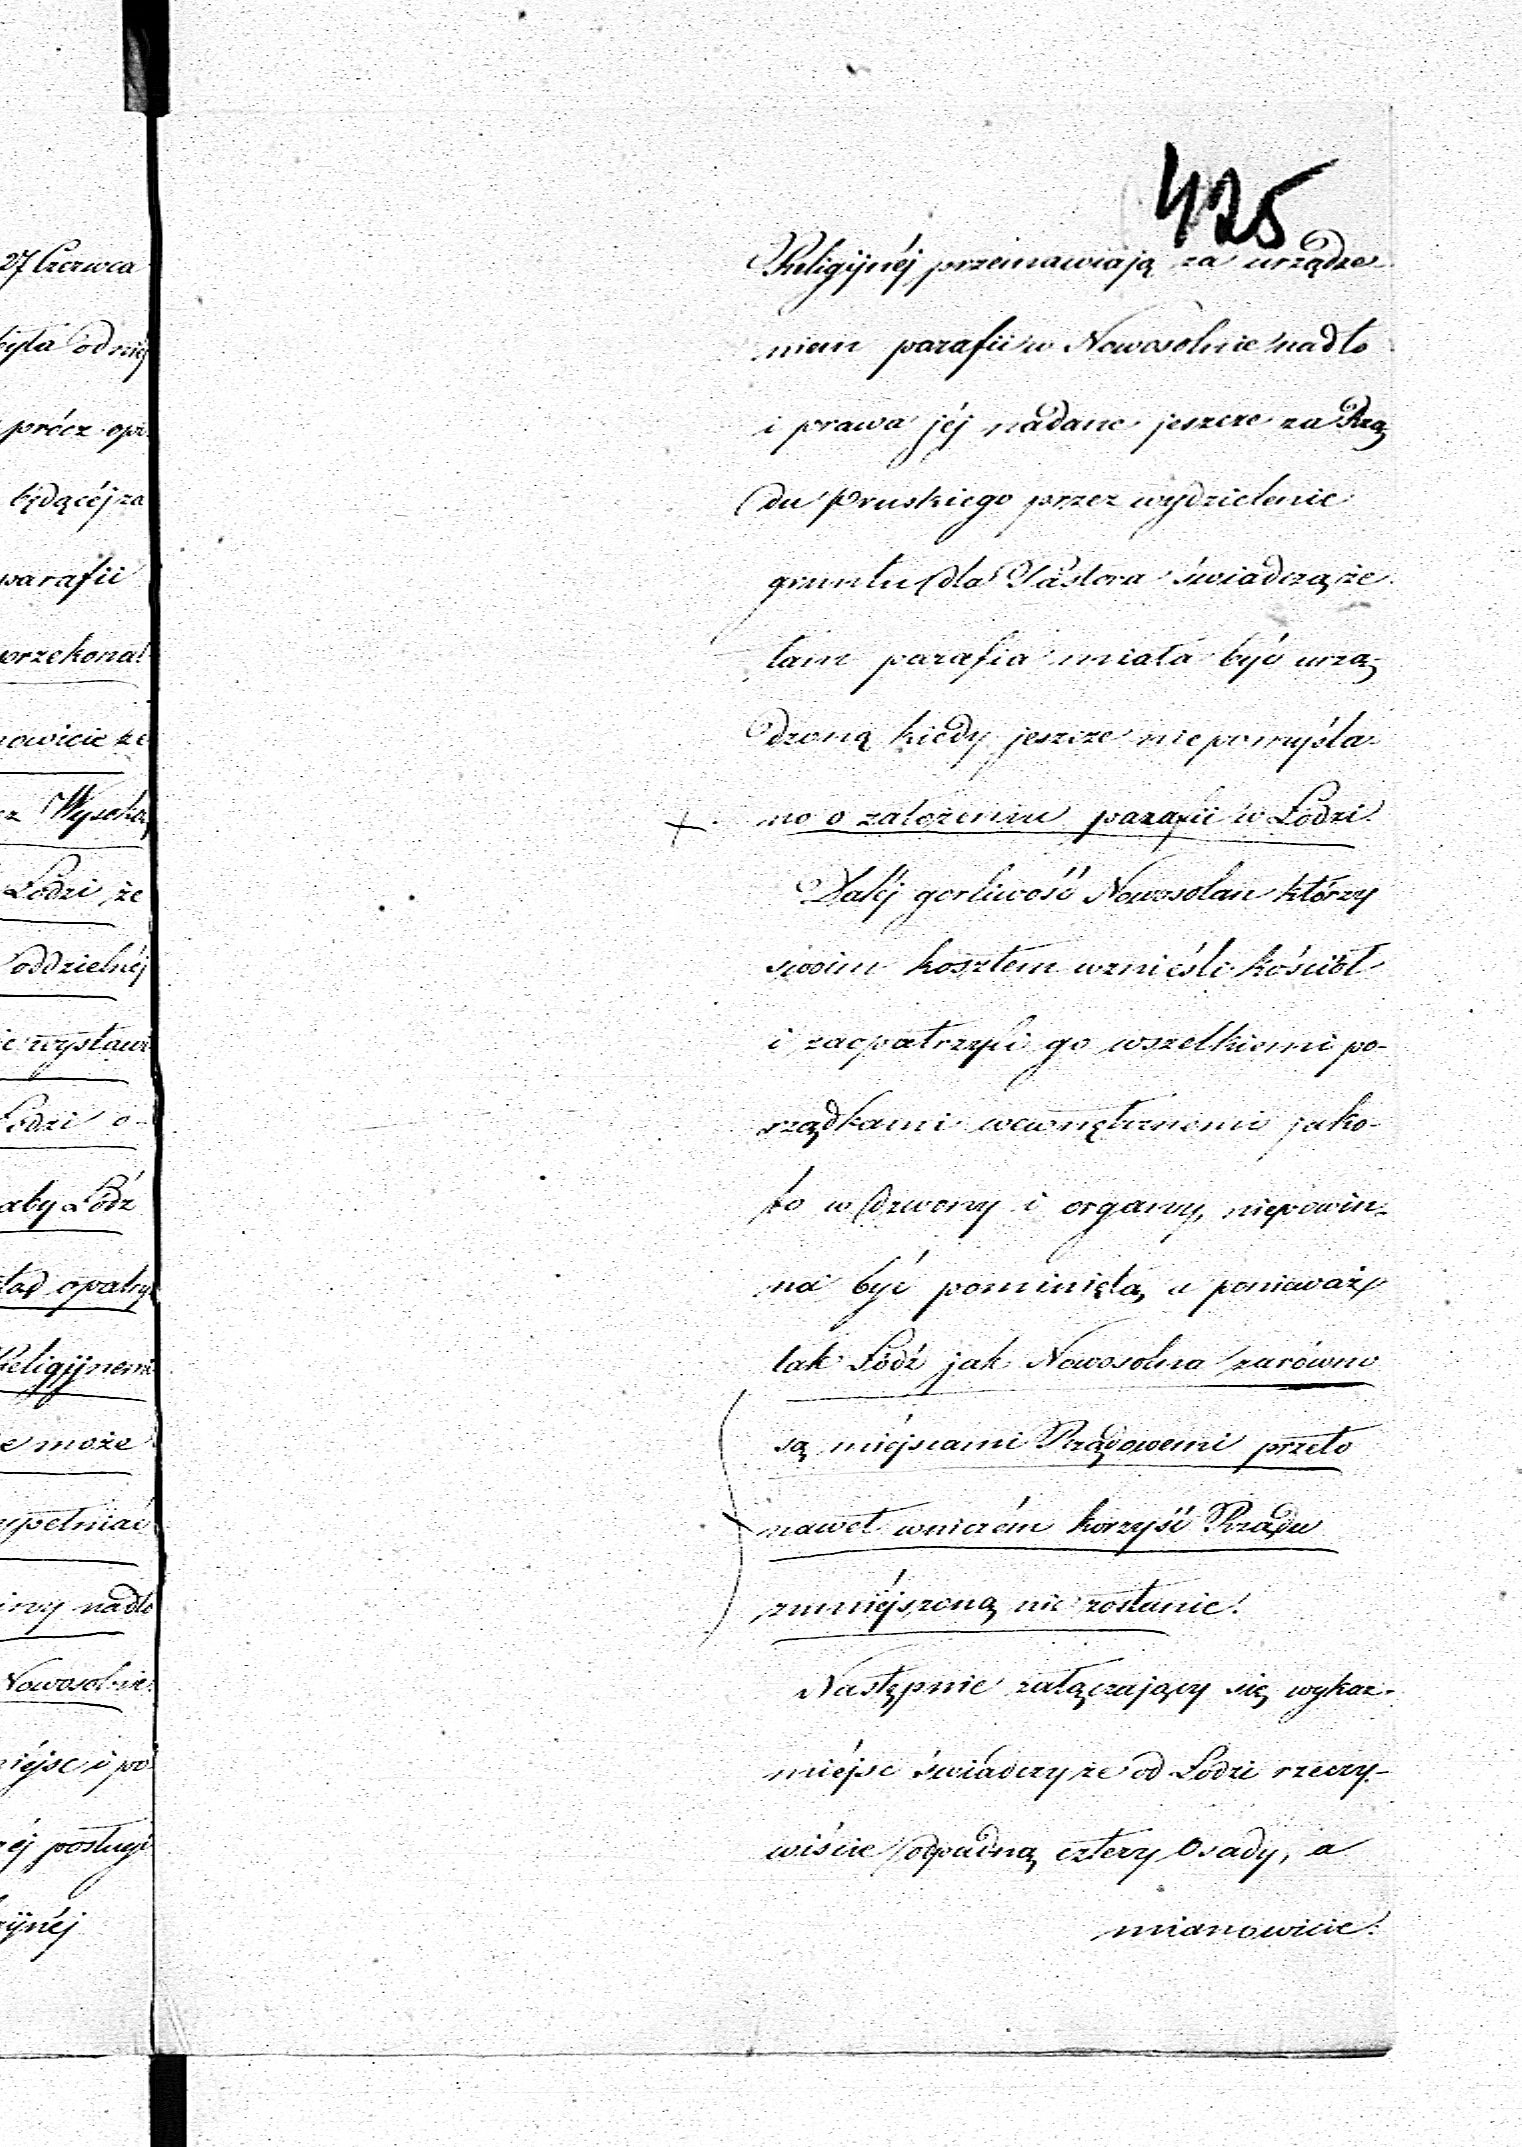 27 Czerwca
była od niéj
prócz opi
będącéj za
parafii
przekonał
nowicie że
cz Wysoką
Łodzi, że
oddzielnéj
ie wystawi
Łodzi o-
aby Łódz
opatrz
Religijnemi
e może
upełniać
nadto
Nowosolnie
miejsc i po
éj posługi
ijnéj
425
Religijnéj przemawiają za urządze
niem parafii w Nowosolnie nadto
i prawa jéj nadane jeszcze za Rzą
du Pruskiego przez wydzielenie
gruntu dla Pastora świadczą, że
tam parafia miała być urzą
dzoną kiedy jeszcze niepomyśla
no o założeniu parafii w Łodzi.
Daléj gorliwość Nowosolan którzy
swoim kosztem wznieśli kościół
i zaopatrzyli go wszelkiemi po-
rządkami wewnętrznemi jako-
to w dzwony i organy, niepowin-
na być pominiętą, a ponieważ
tak Łódź jak Nowosolna zarówno
są miéjscami Rządowemi przeto
nawet wniczém korzyść Rządu
zmniéjszoną nie zostanie.
Następnie załączający się wykaz
miéjsc świadczy że od Łodzi rzeczy-
wiście odpadną cztery Osady, a
mianowicie: